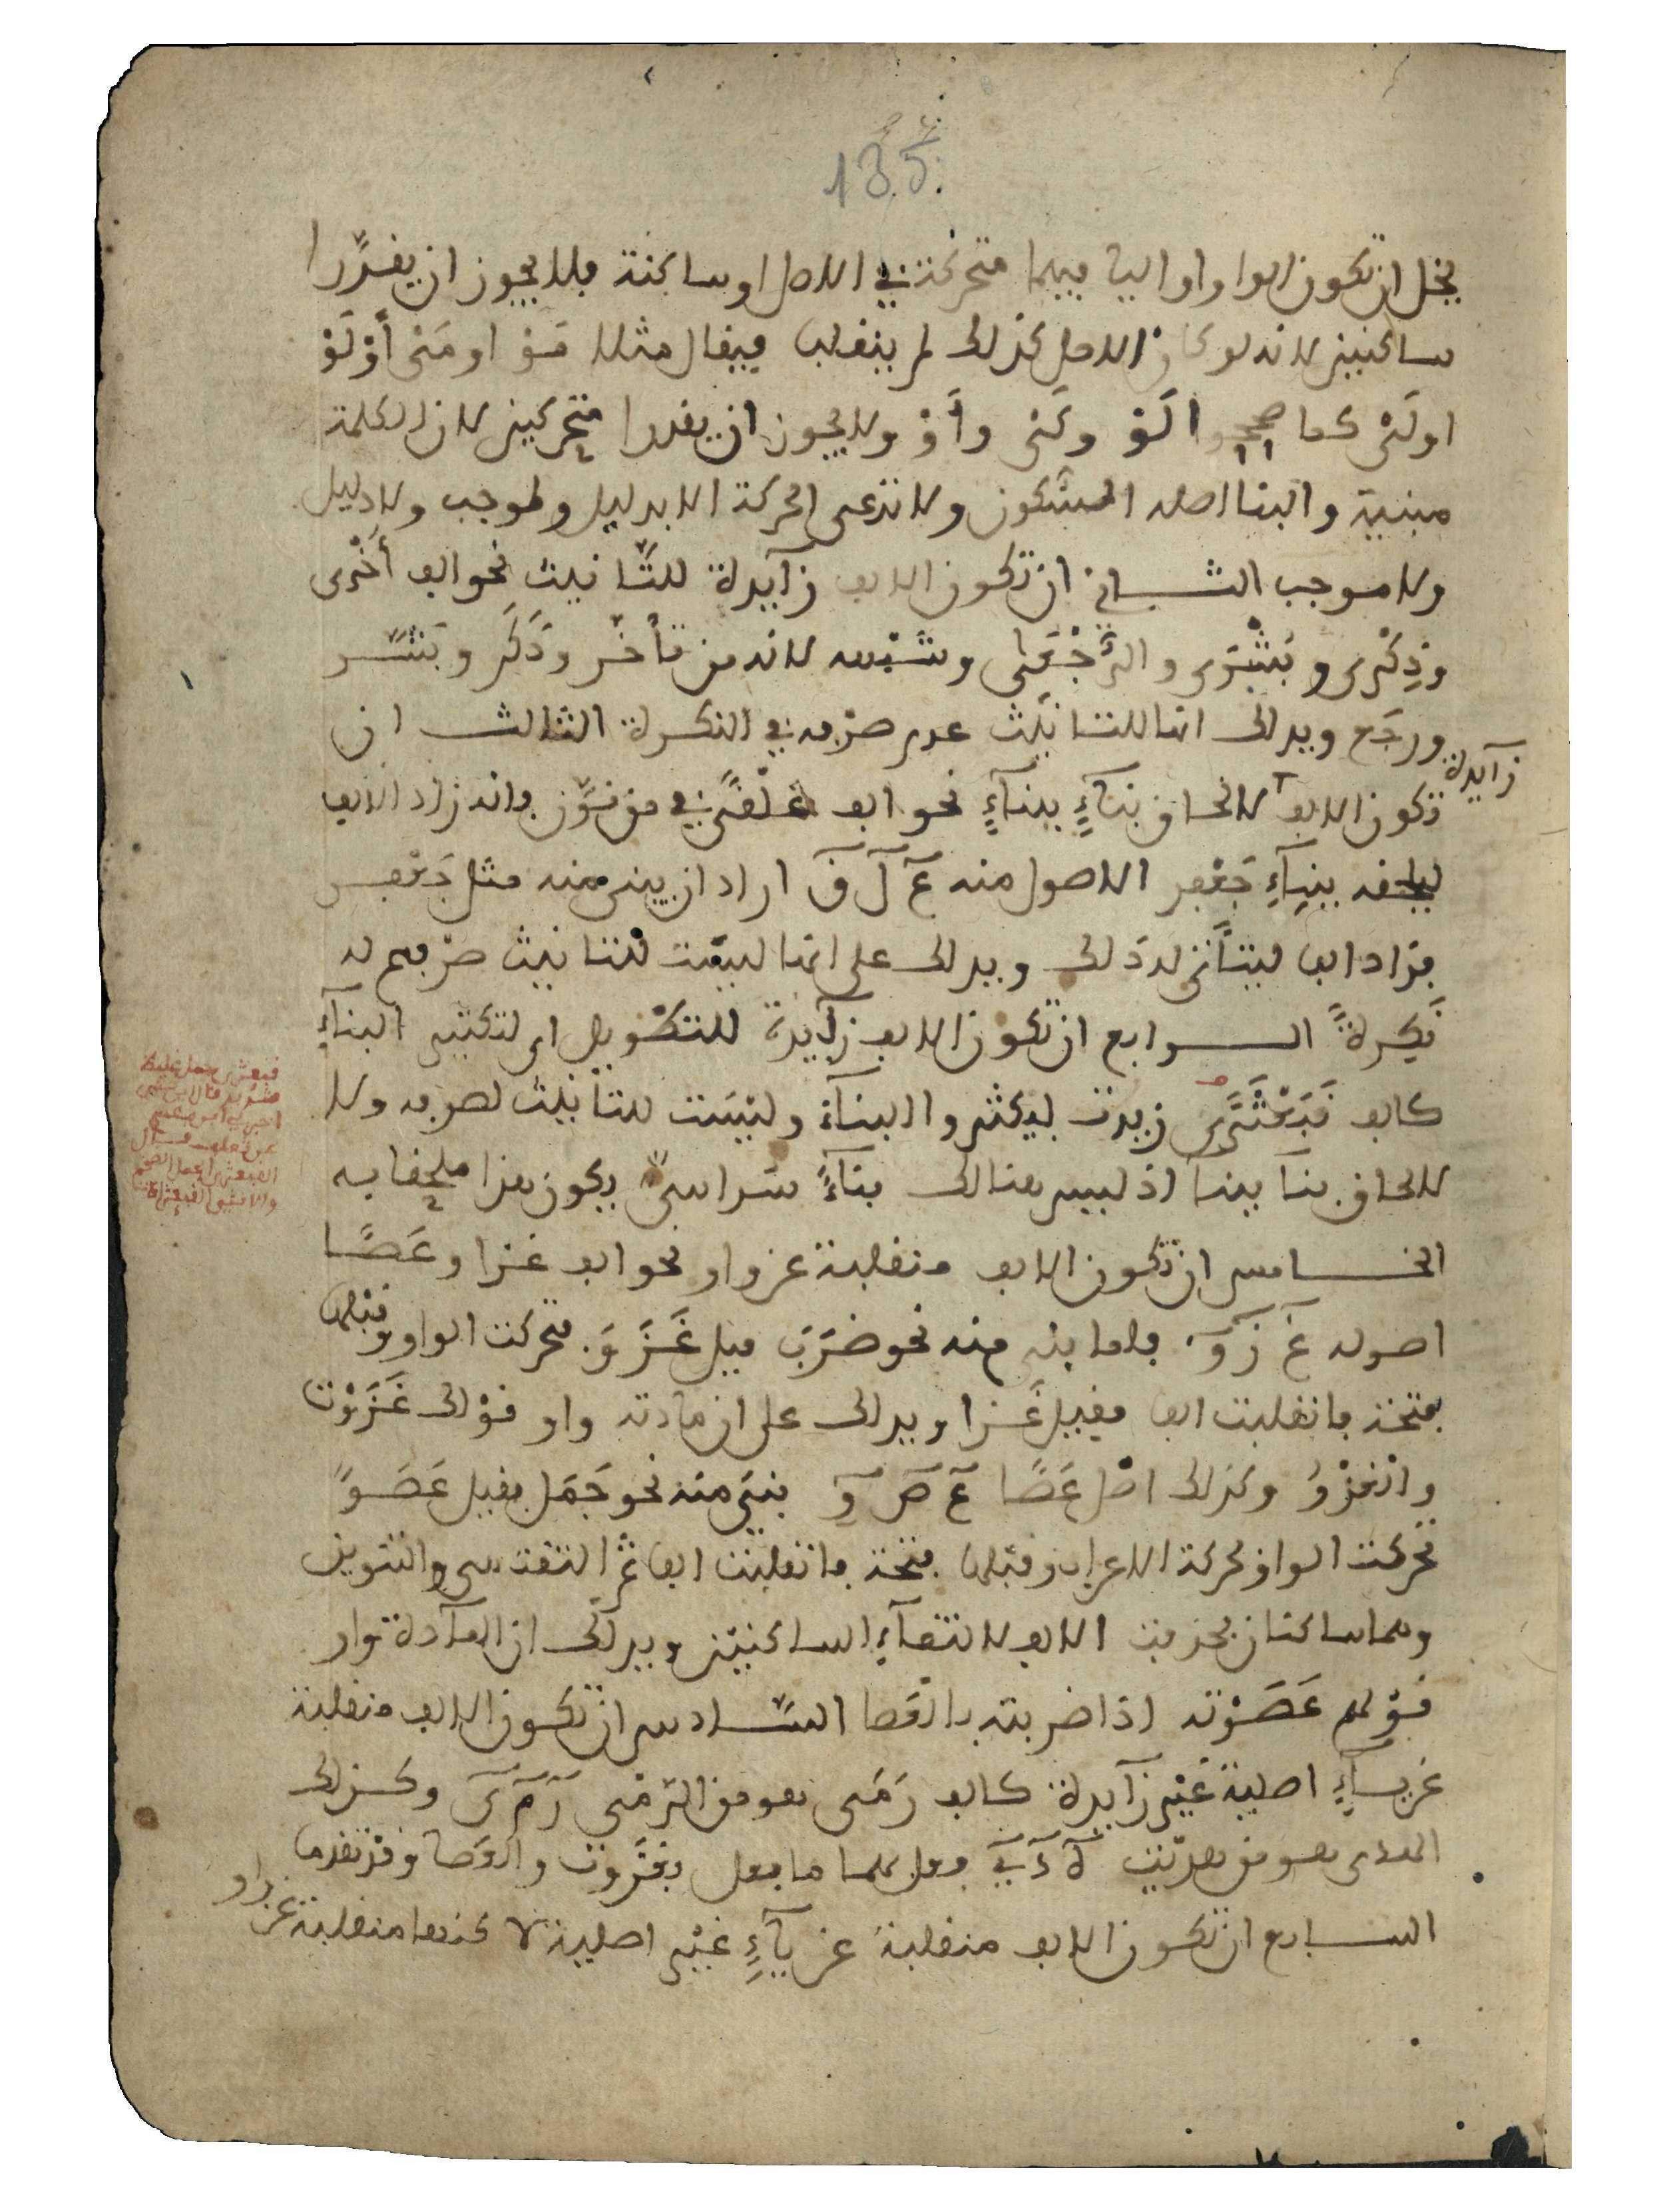 135
يخل ان تكون الواو او اليا فيهما متحركة في الاصل او ساكنة فلا يجوز ان يقدّرا
ساكنين لانه لو كان الاصل كذلك لم ينقلب فيقال مثلا مَوْ او مَيْ أَوْ لَوْ
او لَيْ كما صححوا لَوْ وكَيْ وأَوْ ولا يجوز ان يقدرا متحركين لان الكلمة
مبنية والبنا اصله السكون ولا تدعى الحركة الا بدليل وموجب ولا دليل
ولا موجب الثاني ان تكون الالف زآيدة للتّانيث نحو الف أُخْرى
وذِكْرى وبُشْرَى والرُّجْعَى وشبهه لانه من تأخّر وذَكَر وبَشَّر
ورجَع ويدلك انها للتانيث عدم صرفه في النكرة الثالث ان
تكون الالف زآيدة لالحاق بنآءٍ ببنآءٍ نحو الف عَلْقًى في من نوّن فانه زاد الالف
ليلحقه ببنآءِ جَعْفر الاصول منه عَ لَ قَ اراد ان يبنى منه مثل جَعْفر
فزاد الفا ليتأتى له ذلك ويدلك على انها ليست للتانيث صرفهم له
نَكِرةً الرابع ان تكون الالف زآيدة للتكثير اي لتكثير البنآءِ
كالف قَبَعْثَرًى زيدت ليكثروا البنآءَ وليْسَت للتانيث لصرفه ولا
لالحاق بنا ببنا اذ ليس هنالك بنآءٌ سداسيٌّ فيكون هذا ملحقا به
الخامس ان تكون الالف منقلبة عن واو نحو الف غزا وعَصًا
اصوله غَ زَ وَ فلما بني منه نحو ضَرَبَ قيل غَزَوَ تحركت الواو وقبلها
فتحة فانقلبت الفا فقيل غَزا ويدلك على ان مادته واو قوْلك غَزَوْت
والغزْوُ وكذلك اصْل عَصًا عَ صَ وَ بنِي منه نحو جَمَل فقيل عَصَوٌ
تحركت الواو لحركة الاعراب وقبلها فتحة فانقلبت الفا ثم التقت هي والتنوين
وهما ساكنان فحذفت الالف لالتقآءِ الساكنيْن ويدلك ان المآدة واو
قوْلهم عَصَوْته اذا ضربته بالعَصا السّادس ان تكون الالف منقلبة
عن يآءٍ اصلية غيْر زآيدة كالف رَمَى هو من الرّمْي رَ مَ يَ وكذلك
الهدى هو من هديْت هَ دَ يَ فعل بهما ما فعل بغَزَوت والعَصا وقد تقدما
السابع ان تكون الالف منقلبة عن يآءٍ غيْر اصلية لا كنها منقلبة عن واو